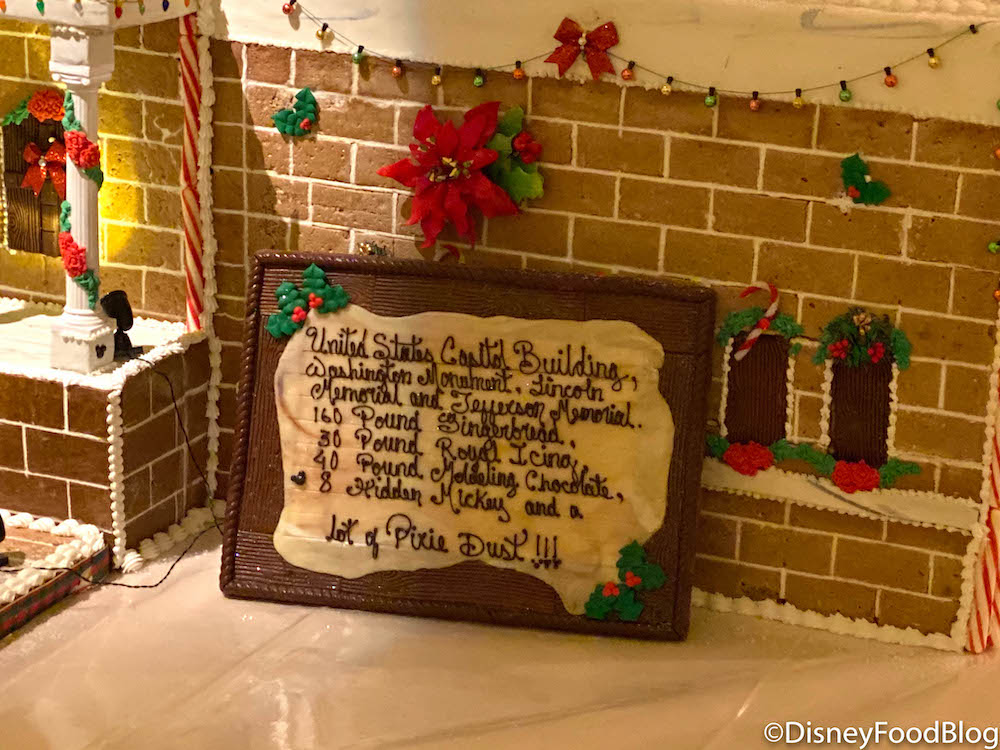 United States Capitol Building,
Washington Monument, Lincoln
Memorial and Jefferson Memorial.
160 Pound Gingerbread,
30 Pound Royal Icing,
40 Pound Moldeling Chocolate,
8 Hidden Mickey and a
Lot of Pixie Dust !!!
©DisneyFoodBlog